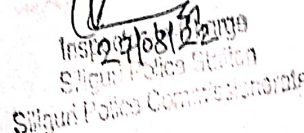 Inspector In-Charge
27/08/22
Siliguri Police Station
Siliguri Police Commissionerate